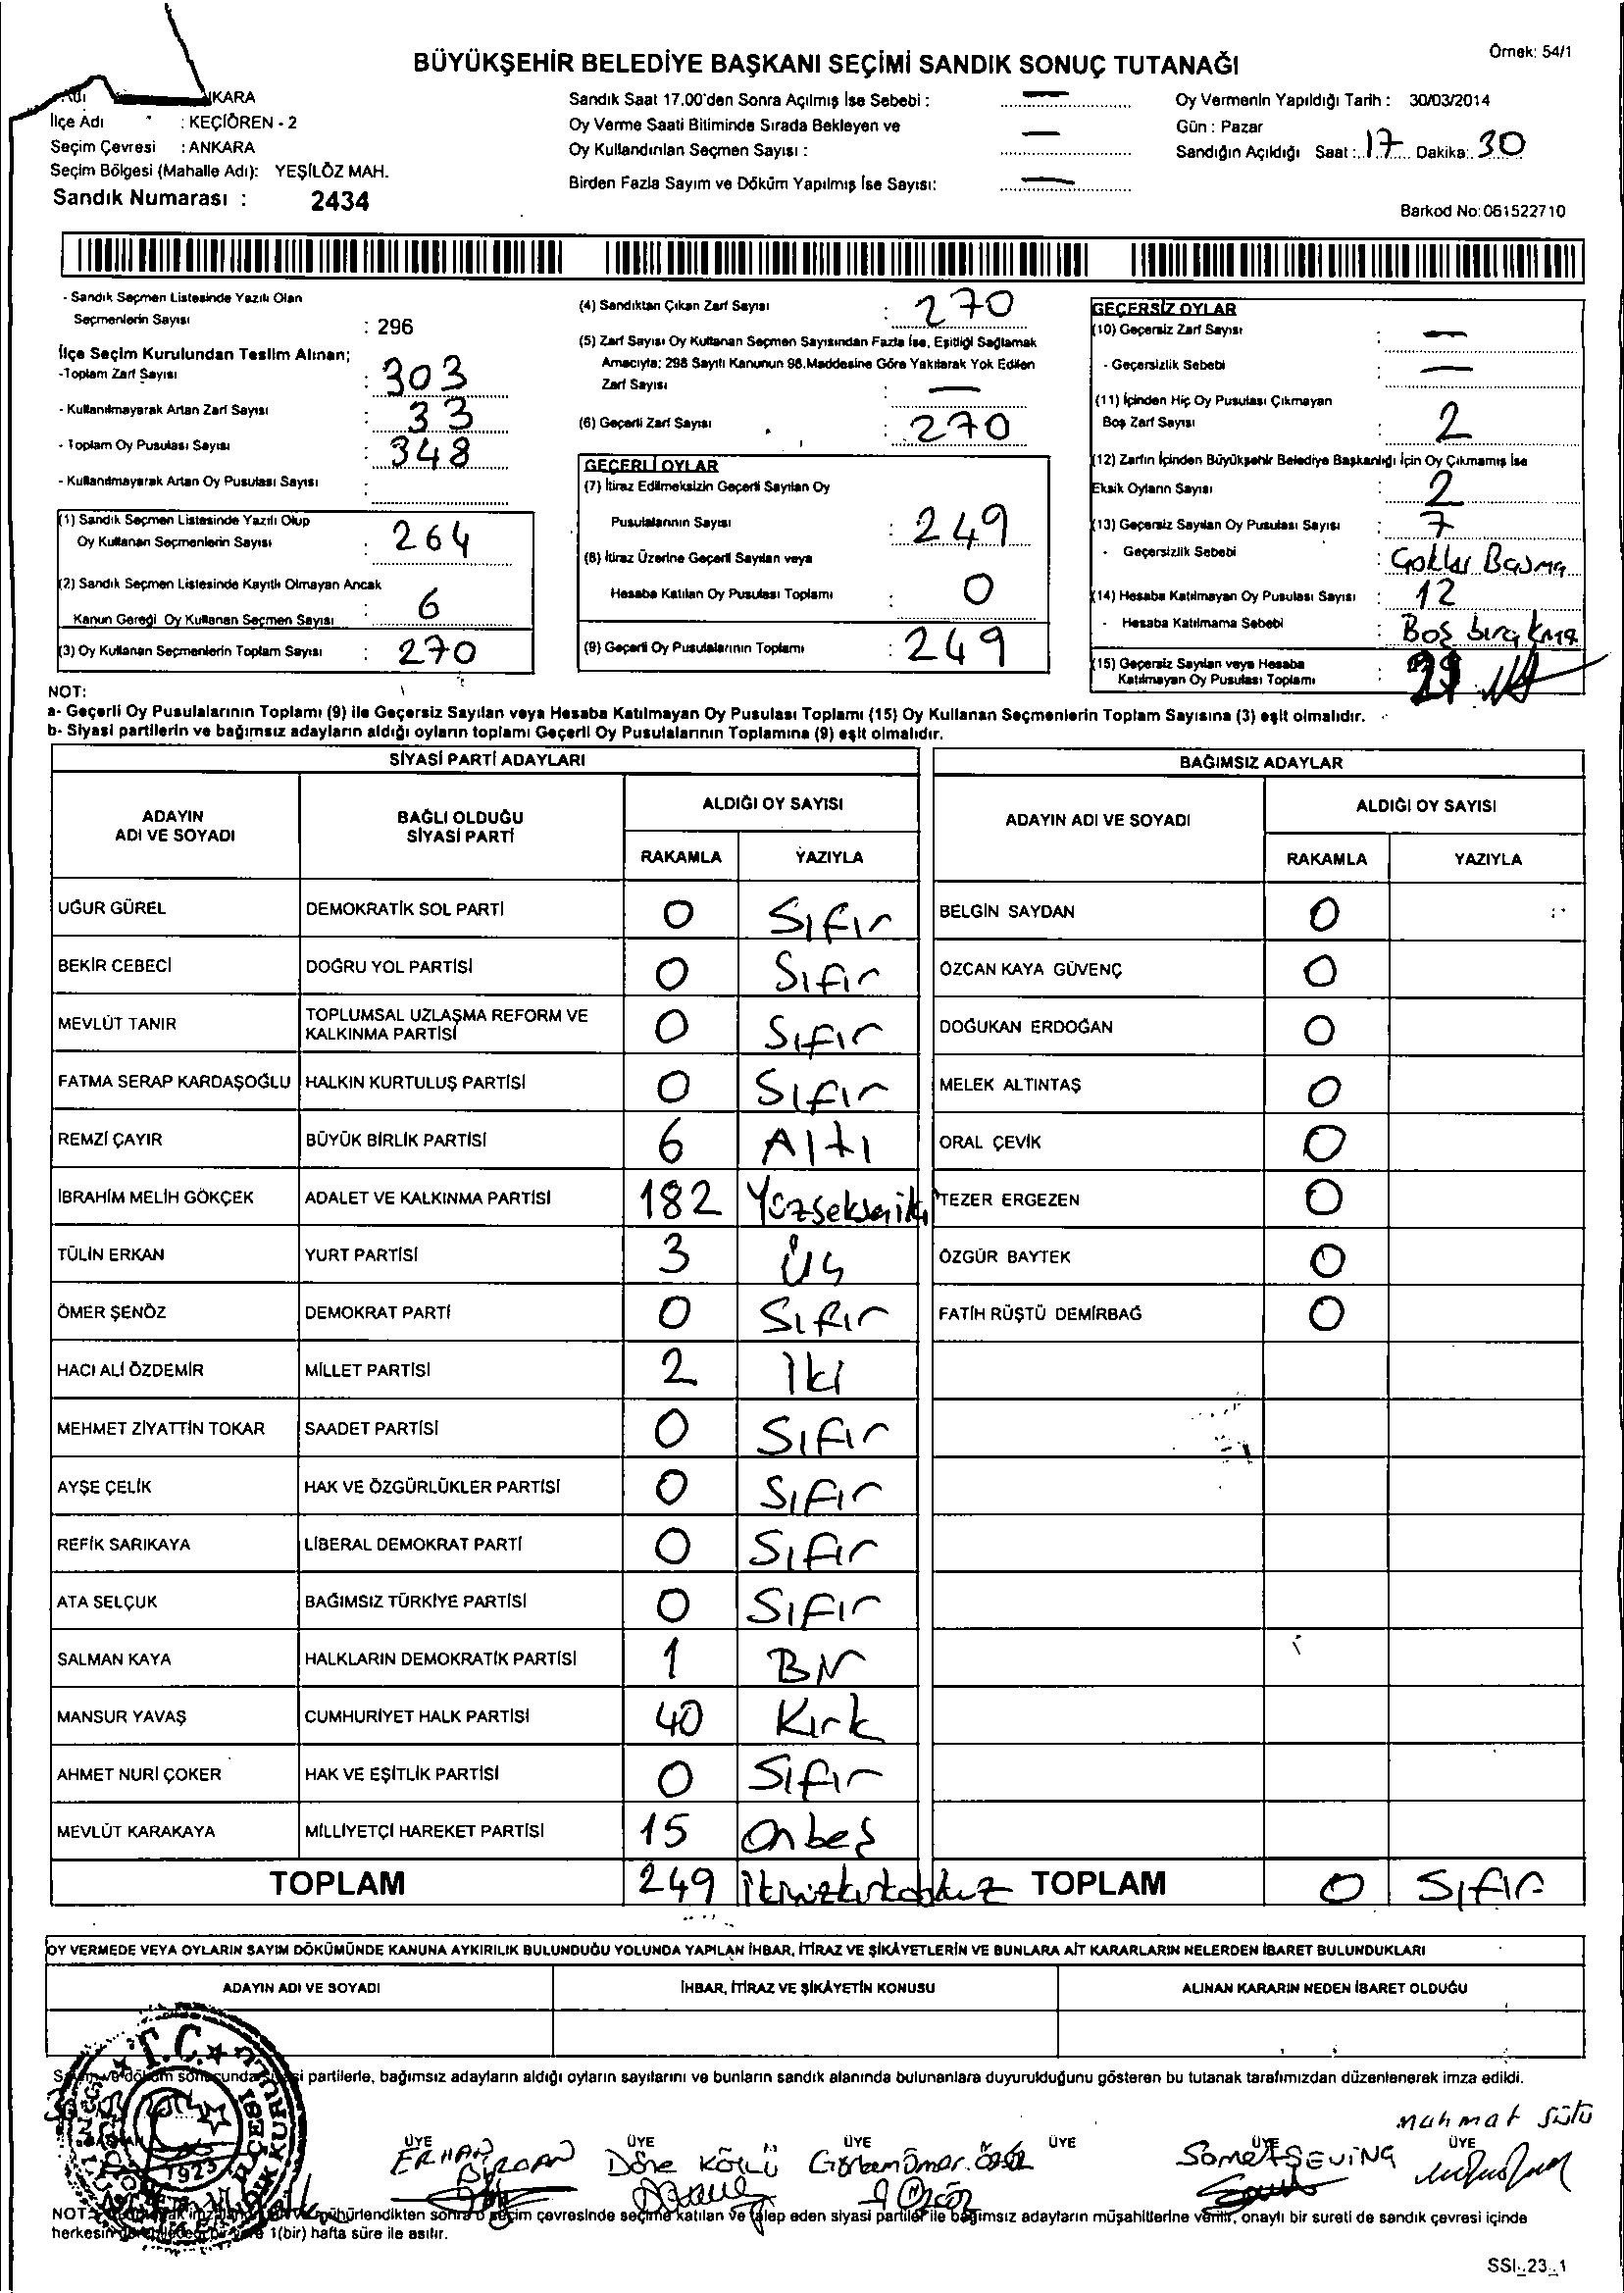 Örnek: 54/1
BÜYÜKŞEHİR BELEDİYE BAŞKANI SEÇİMİ SANDIK SONUÇ TUTANAĞI
İlçe Adı : KEÇİÖREN - 2
Seçim Çevresi : ANKARA
Seçim Bölgesi (Mahalle Adı): YEŞİLÖZ MAH.
Sandık Numarası : 2434
Sandık Saat 17.00'den Sonra Açılmış İse Sebebi : —
Oy Verme Saati Bitiminde Sırada Bekleyen ve
Oy Kullandırılan Seçmen Sayısı : —
Birden Fazla Sayım ve Döküm Yapılmış İse Sayısı: —
Oy Vermenin Yapıldığı Tarih : 30/03/2014
Gün : Pazar
Sandığın Açıldığı Saat : 17 Dakika: 30
Barkod No:061522710
- Sandık Seçmen Listesinde Yazılı Olan
Seçmenlerin Sayısı : 296
İlçe Seçim Kurulundan Teslim Alınan;
-Toplam Zarf Sayısı : 303
- Kullanılmayarak Artan Zarf Sayısı : 33
- Toplam Oy Pusulası Sayısı : 348
- Kullanılmayarak Artan Oy Pusulası Sayısı :
(1) Sandık Seçmen Listesinde Yazılı Olup
Oy Kullanan Seçmenlerin Sayısı : 264
(2) Sandık Seçmen Listesinde Kayıtlı Olmayan Ancak
Kanun Gereği Oy Kullanan Seçmen Sayısı : 6
(3) Oy Kullanan Seçmenlerin Toplam Sayısı : 270
(4) Sandıktan Çıkan Zarf Sayısı : 270
(5) Zarf Sayısı Oy Kullanan Seçmen Sayısından Fazla İse, Eşitliği Sağlamak
Amacıyla; 298 Sayılı Kanunun 98.Maddesine Göre Yakılarak Yok Edilen
Zarf Sayısı : —
(6) Geçerli Zarf Sayısı : 270
GEÇERLİ OYLAR
(7) İtiraz Edilmeksizin Geçerli Sayılan Oy
Pusulalarının Sayısı : 249
(8) İtiraz Üzerine Geçerli Sayılan veya
Hesaba Katılan Oy Pusulası Toplamı : 0
(9) Geçerli Oy Pusulalarının Toplamı : 249
GEÇERSİZ OYLAR
(10) Geçersiz Zarf Sayısı : —
- Geçersizlik Sebebi : —
(11) İçinden Hiç Oy Pusulası Çıkmayan
Boş Zarf Sayısı : 2
(12) Zarfın İçinden Büyükşehir Belediye Başkanlığı İçin Oy Çıkmamış İse
Eksik Oyların Sayısı : 2
(13) Geçersiz Sayılan Oy Pusulası Sayısı : 7
- Geçersizlik Sebebi : Çoklu Basma
(14) Hesaba Katılmayan Oy Pusulası Sayısı : 12
- Hesaba Katılmama Sebebi : Boş bırakma
(15) Geçersiz Sayılan veya Hesaba
Katılmayan Oy Pusulası Toplamı :
NOT:
a- Geçerli Oy Pusulalarının Toplamı (9) ile Geçersiz Sayılan veya Hesaba Katılmayan Oy Pusulası Toplamı (15) Oy Kullanan Seçmenlerin Toplam Sayısına (3) eşit olmalıdır.
b- Siyasi partilerin ve bağımsız adayların aldığı oyların toplamı Geçerli Oy Pusulalarının Toplamına (9) eşit olmalıdır.
SİYASİ PARTİ ADAYLARI
ADAYIN ADI VE SOYADI | BAĞLI OLDUĞU SİYASİ PARTİ | ALDIĞI OY SAYISI
RAKAMLA | YAZIYLA
UĞUR GÜREL | DEMOKRATİK SOL PARTİ | 0 | Sıfır
BEKİR CEBECİ | DOĞRU YOL PARTİSİ | 0 | Sıfır
MEVLÜT TANIR | TOPLUMSAL UZLAŞMA REFORM VE KALKINMA PARTİSİ | 0 | Sıfır
FATMA SERAP KARDAŞOĞLU | HALKIN KURTULUŞ PARTİSİ | 0 | Sıfır
REMZİ ÇAYIR | BÜYÜK BİRLİK PARTİSİ | 6 | Altı
İBRAHİM MELİH GÖKÇEK | ADALET VE KALKINMA PARTİSİ | 182 | Yüzsekseniki
TÜLİN ERKAN | YURT PARTİSİ | 3 | Üç
ÖMER ŞENÖZ | DEMOKRAT PARTİ | 0 | Sıfır
HACI ALİ ÖZDEMİR | MİLLET PARTİSİ | 2 | İki
MEHMET ZİYATTİN TOKAR | SAADET PARTİSİ | 0 | Sıfır
AYŞE ÇELİK | HAK VE ÖZGÜRLÜKLER PARTİSİ | 0 | Sıfır
REFİK SARIKAYA | LİBERAL DEMOKRAT PARTİ | 0 | Sıfır
ATA SELÇUK | BAĞIMSIZ TÜRKİYE PARTİSİ | 0 | Sıfır
SALMAN KAYA | HALKLARIN DEMOKRATİK PARTİSİ | 1 | Bir
MANSUR YAVAŞ | CUMHURİYET HALK PARTİSİ | 40 | Kırk
AHMET NURİ ÇOKER | HAK VE EŞİTLİK PARTİSİ | 0 | Sıfır
MEVLÜT KARAKAYA | MİLLİYETÇİ HAREKET PARTİSİ | 15 | Onbeş
TOPLAM | 249 | İkiyüzkırkdokuz
BAĞIMSIZ ADAYLAR
ADAYIN ADI VE SOYADI | ALDIĞI OY SAYISI
RAKAMLA | YAZIYLA
BELGİN SAYDAN | 0
ÖZCAN KAYA GÜVENÇ | 0
DOĞUKAN ERDOĞAN | 0
MELEK ALTINTAŞ | 0
ORAL ÇEVİK | 0
TEZER ERGEZEN | 0
ÖZGÜR BAYTEK | 0
FATİH RÜŞTÜ DEMİRBAĞ | 0
TOPLAM | 0 | Sıfır
OY VERMEDE VEYA OYLARIN SAYIM DÖKÜMÜNDE KANUNA AYKIRILIK BULUNDUĞU YOLUNDA YAPILAN İHBAR, İTİRAZ VE ŞİKÂYETLERİN VE BUNLARA AİT KARARLARIN NELERDEN İBARET BULUNDUKLARI
ADAYIN ADI VE SOYADI | İHBAR, İTİRAZ VE ŞİKÂYETİN KONUSU | ALINAN KARARIN NEDEN İBARET OLDUĞU
partilerle, bağımsız adayların aldığı oyların sayılarını ve bunların sandık alanında bulunanlara duyurulduğunu gösteren bu tutanak tarafımızdan düzenlenerek imza edildi.
T.C.
1923
Mahmat Sütü
ÜYE ÜYE ÜYE ÜYE ÜYE ÜYE
Döne
NOT: mühürlendikten sonra o seçim çevresinde seçime katılan ve talep eden siyasi partiler ile bağımsız adayların müşahitlerine verilir, onaylı bir sureti de sandık çevresi içinde
herkesin 1(bir) hafta süre ile asılır.
SSI_23_1